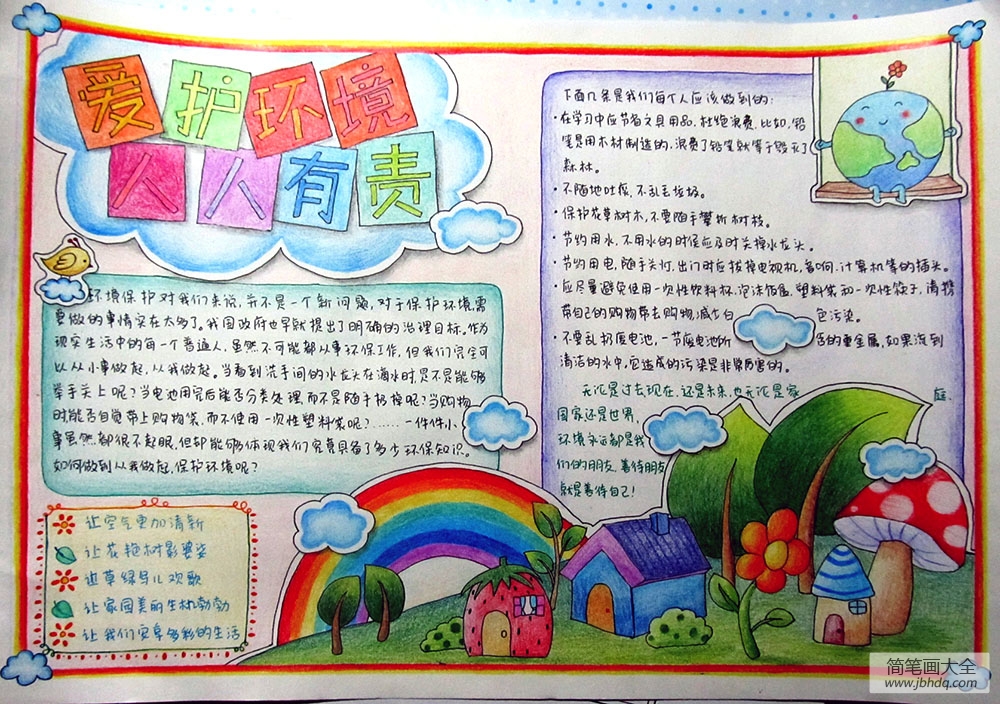 爱护环境
人人有责
环境保护对我们来说,并不是一个新问题,对于保护环境,需
要做的事情实在太多了。我国政府也早就提出了明确的治理目标。作为
现实生活中的每一个普通人,虽然不可能都从事环保工作,但我们完全可
以从小事做起,从我做起。当看到洗手间的水龙头在滴水时,是不是能够
举手关上呢?当电池用完后能否分类处理,而不是随手扔掉呢?当购物
时,能否自觉带上购物袋,而不使用一次性塑料袋呢?……一件件小
事虽然都很不起眼,但却能够体现我们究竟具备了多少环保知识。
如何做到从我做起,保护环境呢?
让空气更加清新
让花艳树影婆娑
让草绿鸟儿欢歌
让家园美丽生机勃勃
让我们安享多彩的生活
下面几条是我们每个人应该做到的:
·在学习中应节省文具用品,杜绝浪费。比如,铅
笔是用木材制造的,浪费了铅笔就等于毁灭了
森林。
·不随地吐痰,不乱丢垃圾。
·保护花草树木,不要随手攀折树枝。
·节约用水,不用水的时候应及时关掉水龙头。
·节约用电,随手关灯,出门时应拔掉电视机,音响,计算机等的插头。
·应尽量避免使用一次性饮料杯、泡沫饭盒、塑料袋和一次性筷子,请携
带自己的购物袋去购物,减少白色污染。
·不要乱扔废电池,一节废电池所含的重金属,如果流到
清洁的水中,它造成的污染是非常厉害的。
无论是过去,现在,还是未来,也无论是家庭、
国家还是世界,
环境永远都是我
们的朋友,善待朋友
就是善待自己!
简笔画大全
www.jbhdq.com